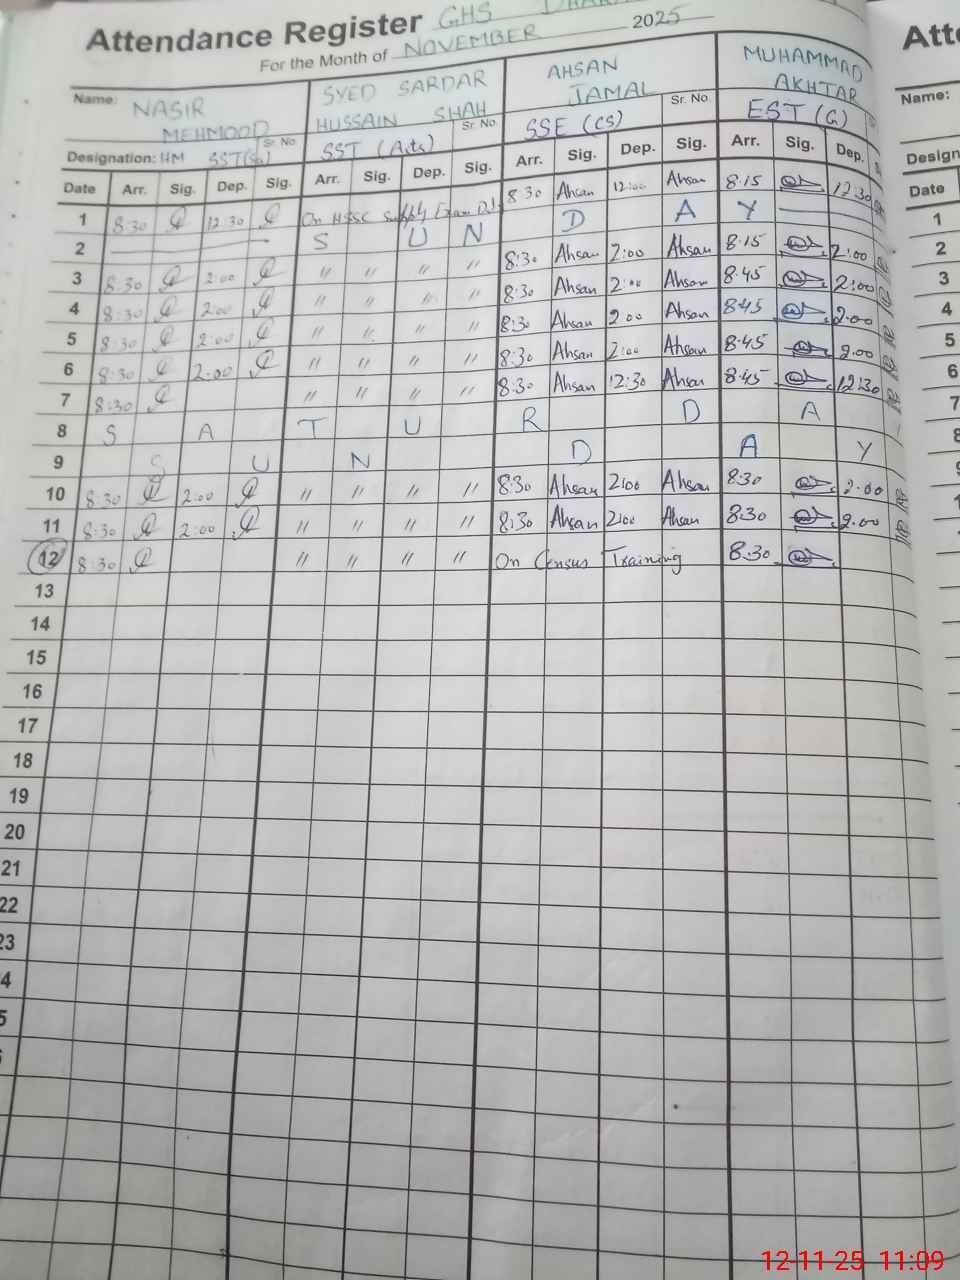 Attendance Register GHS
For the Month of NOVEMBER 2025
Name: NASIR MEHMOOD SYED SARDAR HUSSAIN SHAH AHSAN JAMAL MUHAMMAD AKHTAR
Sr. No Sr. No Sr. No
Designation: HM SST(Sc) SST (Arts) SSE (CS) EST (G)
Date Arr. Sig. Dep. Sig. Arr. Sig. Dep. Sig. Arr. Sig. Dep. Sig. Arr. Sig. Dep.
1 8:30 12:30 On HSSC Supply Exam 8:30 Ahsan 12:00 Ahsan 8:15 12:30
2 S U N D A Y
3 8:30 2:00 " " " " 8:30 Ahsan 2:00 Ahsan 8:15 2:00
4 8:30 2:00 " " " " 8:30 Ahsan 2:00 Ahsan 8:45 2:00
5 8:30 2:00 " " " " 8:30 Ahsan 2:00 Ahsan 8:45 2:00
6 8:30 2:00 " " " " 8:30 Ahsan 2:00 Ahsan 8:45 2:00
7 8:30 " " " " 8:30 Ahsan 12:30 Ahsan 8:45 12:30
8 S A T U R D A
9 S U N D A Y
10 8:30 2:00 " " " " 8:30 Ahsan 2:00 Ahsan 8:30 2:00
11 8:30 2:00 " " " " 8:30 Ahsan 2:00 Ahsan 8:30 2:00
12 8:30 " " " " On Census Training 8:30
13
14
15
16
17
18
19
20
21
22
23
4
5
Name:
Date
1
2
3
4
5
6
7
12-11-25 11:09